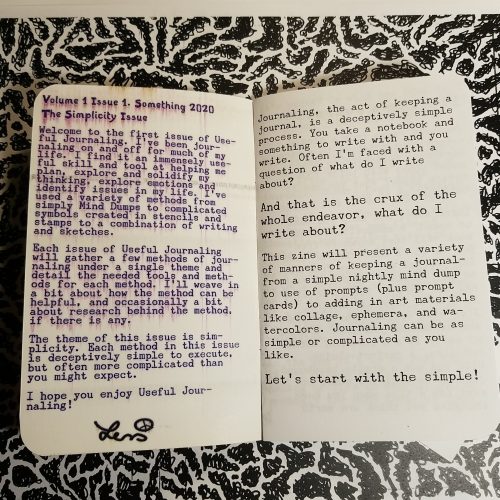 Volume 1 Issue 1. Something 2020
The Simplicity Issue
Welcome to the first issue of Use-
ful Journaling. I've been jour-
naling on and off for much of my
life. I find it an immensely use-
ful skill and tool at helping me
plan, explore and solidify my
thinking, explore emotions and
identify issues in my life. I've
used a variety of methods from
simply Mind Dumps to complicated
symbols created in stencils and
stamps to a combination of writing
and sketches.
Each issue of Useful Journaling
will gather a few methods of jour-
naling under a single theme and
detail the needed tools and meth-
ods for each method. I'll weave in
a bit about how the method can be
helpful, and occasionally a bit
about research behind the method,
if there is any.
The theme of this issue is sim-
plicity. Each method in this issue
is deceptively simple to execute,
but often more complicated than
you might expect.
I hope you enjoy Useful Jour-
naling!
Less
Journaling, the act of keeping a
journal, is a deceptively simple
process. You take a notebook and
something to write with and you
write. Often I'm faced with a
question of what do I write
about?
And that is the crux of the
whole endeavor, what do I
write about?
This zine will present a variety
of manners of keeping a journal-
from a simple nightly mind dump
to use of prompts (plus prompt
cards) to adding in art materials
like collage, ephemera, and wa-
tercolors. Journaling can be as
simple or complicated as you
like.
Let's start with the simple!